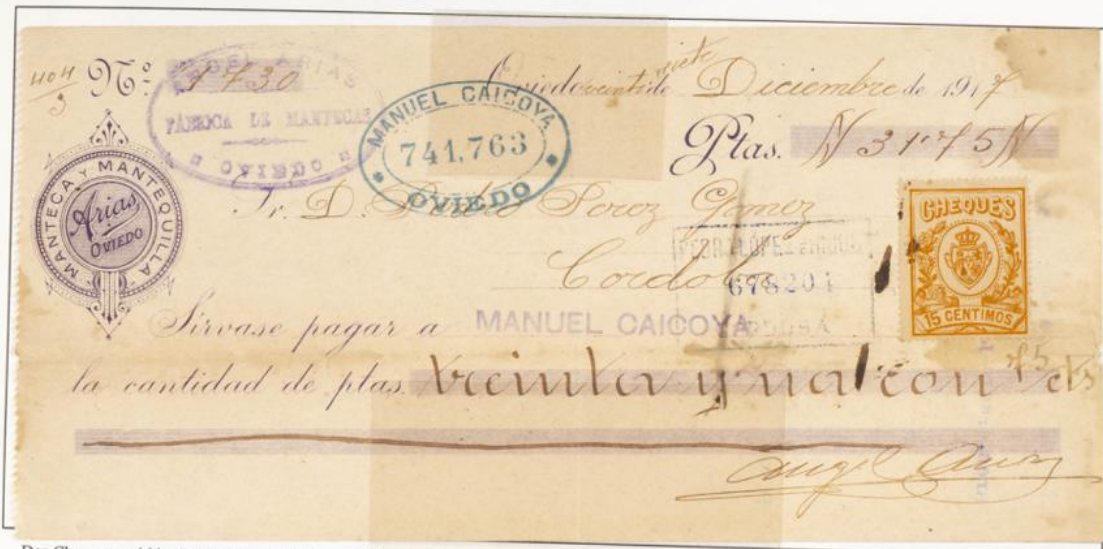 404/3 Nº 1730
ANGEL ARIAS
FÁBRICA DE MANTECAS
OVIEDO
MANUEL CAICOYA
741,763
OVIEDO
Oviedo veinti siete de Diciembre de 1917
Ptas. 31'75
MANTECA Y MANTEQUILLA
Arias
OVIEDO
Sr. D. Pedro Perez Gomez
Cordoba
678204
CHEQUES
15 CÉNTIMOS
Sírvase pagar a MANUEL CAICOYA
la cantidad de ptas. treinta y una con 75 cts
Angel Arias